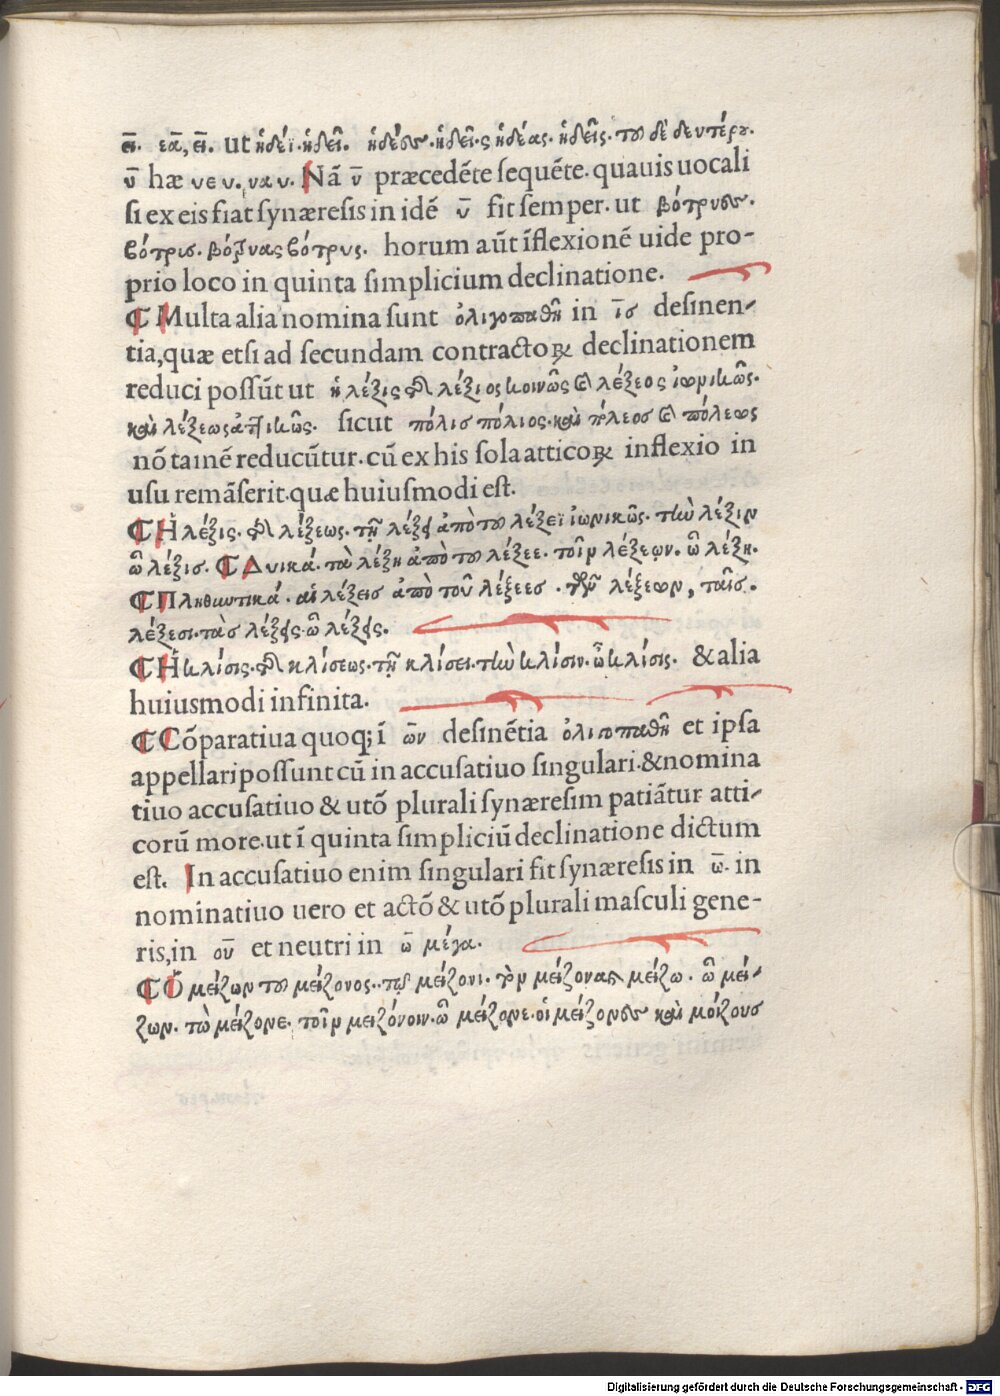 ει̅. εα̅, ει̅. ut ἡδέϊ. ἡδεῖ. ἡδέες. ἡδεῖς ἡδέας. ἡδεῖς. του δὲ δευτέρου.
υ̅ hæ νευ. ναυ. Nā υ̅ præcedēte sequēte. quauis uocali
si ex eis fiat synæresis in idē υ̅ fit semper. ut βότρυες.
βότρυς. βότρυας βότρυς. horum aūt īflexionē uide pro-
prio loco in quinta simplicium declinatione.
¶ Multa alia nomina sunt ὀλιγοπαθῆ in ις̅ desinen-
tia, quæ etsi ad secundam contractoꝝ declinationem
reduci possūt ut ἡ λέξις τῆς λέξιος κοινῶς καὶ λέξεος ἰωνικῶς.
καὶ λέξεως ἀττικῶς. sicut πόλισ πόλιος. καὶ πόλεοσ καὶ πόλεως
nō tamē reducūtur. cū ex his sola atticoꝝ inflexio in
usu remāserit. quæ huiusmodi est.
¶ Ἡ λέξις. τῆς λέξεως. τῇ λέξει ἀπὸ του λέξεϊ ἰωνικῶς. τὴν λέξιν
ὦ λέξισ. ¶ Δυικά. τὰ λέξη ἀπὸ του λέξεε. τοῖν λέξεῳν. ὦ λέξη.
¶ Πληθυντικά. αἱ λέξεισ ἀπὸ τοῦ λέξεεσ. τῶν λέξεων, ταῖσ.
λέξεσι. τὰσ λέξεις. ὦ λέξεις.
¶ Ἡ κλίσις. τῆς κλίσεως. τῇ κλίσει. τὴν κλίσιν. ὦ κλίσις. & alia
huiusmodi infinita.
¶ Cōparatiua quoq; ī ων̅ desinētia ὀλιγοπαθῆ et ipsa
appellari possunt cū in accusatiuo singulari. & nomina
tiuo accusatiuo & utō plurali synæresim patiātur atti-
corū more. ut ī quinta simpliciū declinatione dictum
est. In accusatiuo enim singulari fit synæresis in ω̅. in
nominatiuo uero et actō & utō plurali masculi gene-
ris, in ου̅ et neutri in ω̅ μέγα.
¶ Ὁ μείζων του μείζονος. τῷ μείζονι. τὸν μείζονα καὶ μείζω. ὦ μεί-
ζων. τὼ μείζονε. τοῖν μειζόνοιν. ὦ μείζονε. οἱ μείζονες καὶ μείζους
Digitalisierung gefördert durch die Deutsche Forschungsgemeinschaft - DFG